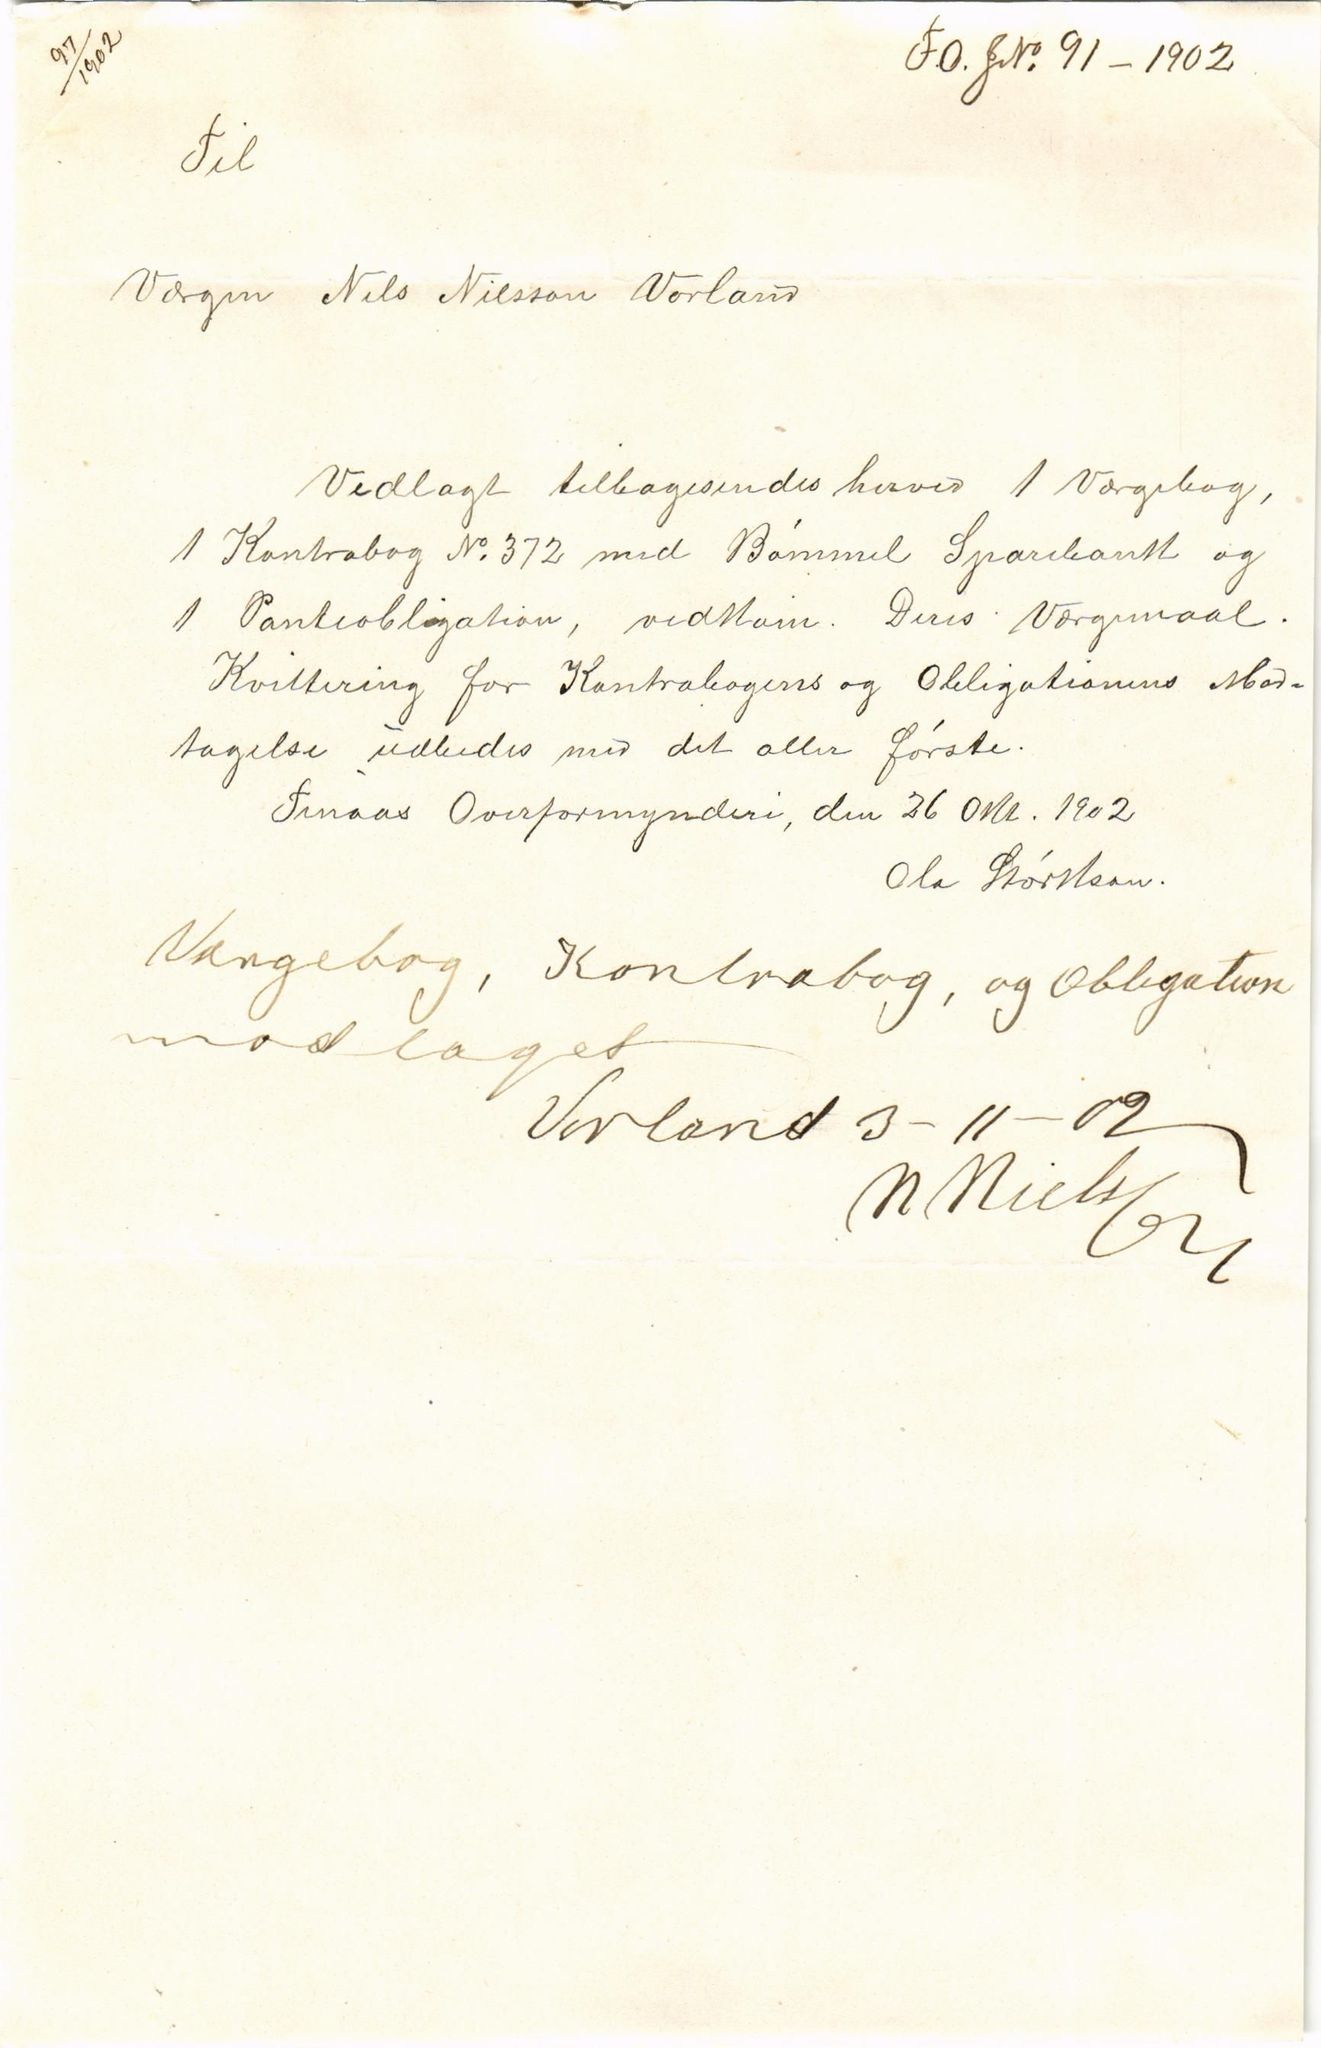 97/1902
F.O. J.No. 91 – 1902
Til
Værgen Nils Nilsson Vorland
Vedlagt tilbagesendes herved 1 Værgebog,
1 Kontrabog No. 372 med Bömmel Sparebank og
1 Panteobligation, vedkom. Deres Værgemaal.
Kvittering for Kontrabogens og Obligationens Mod-
tagelse udbedes med det aller förste.
Finaas Overformynderi, den 26 Okt. 1902
Ola
Værgebog, Kontrabog, og Obligation
modtaget
Vorland 3 – 11 – 02
N Nielsen